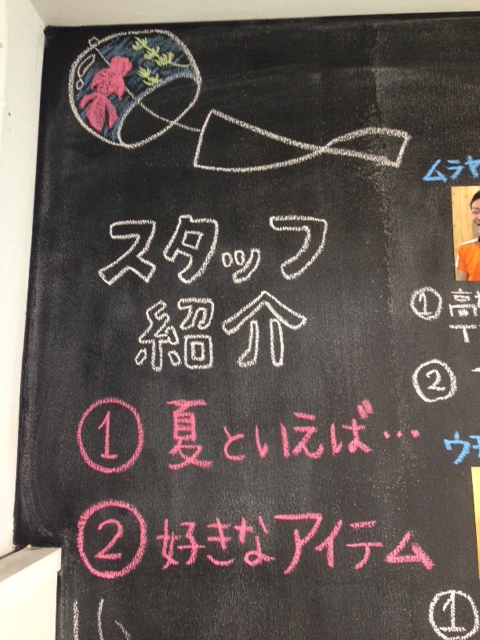 スタッフ
紹介
① 夏といえば…
② 好きなアイテム
ムラヤ
① 高
②
ウチ
①